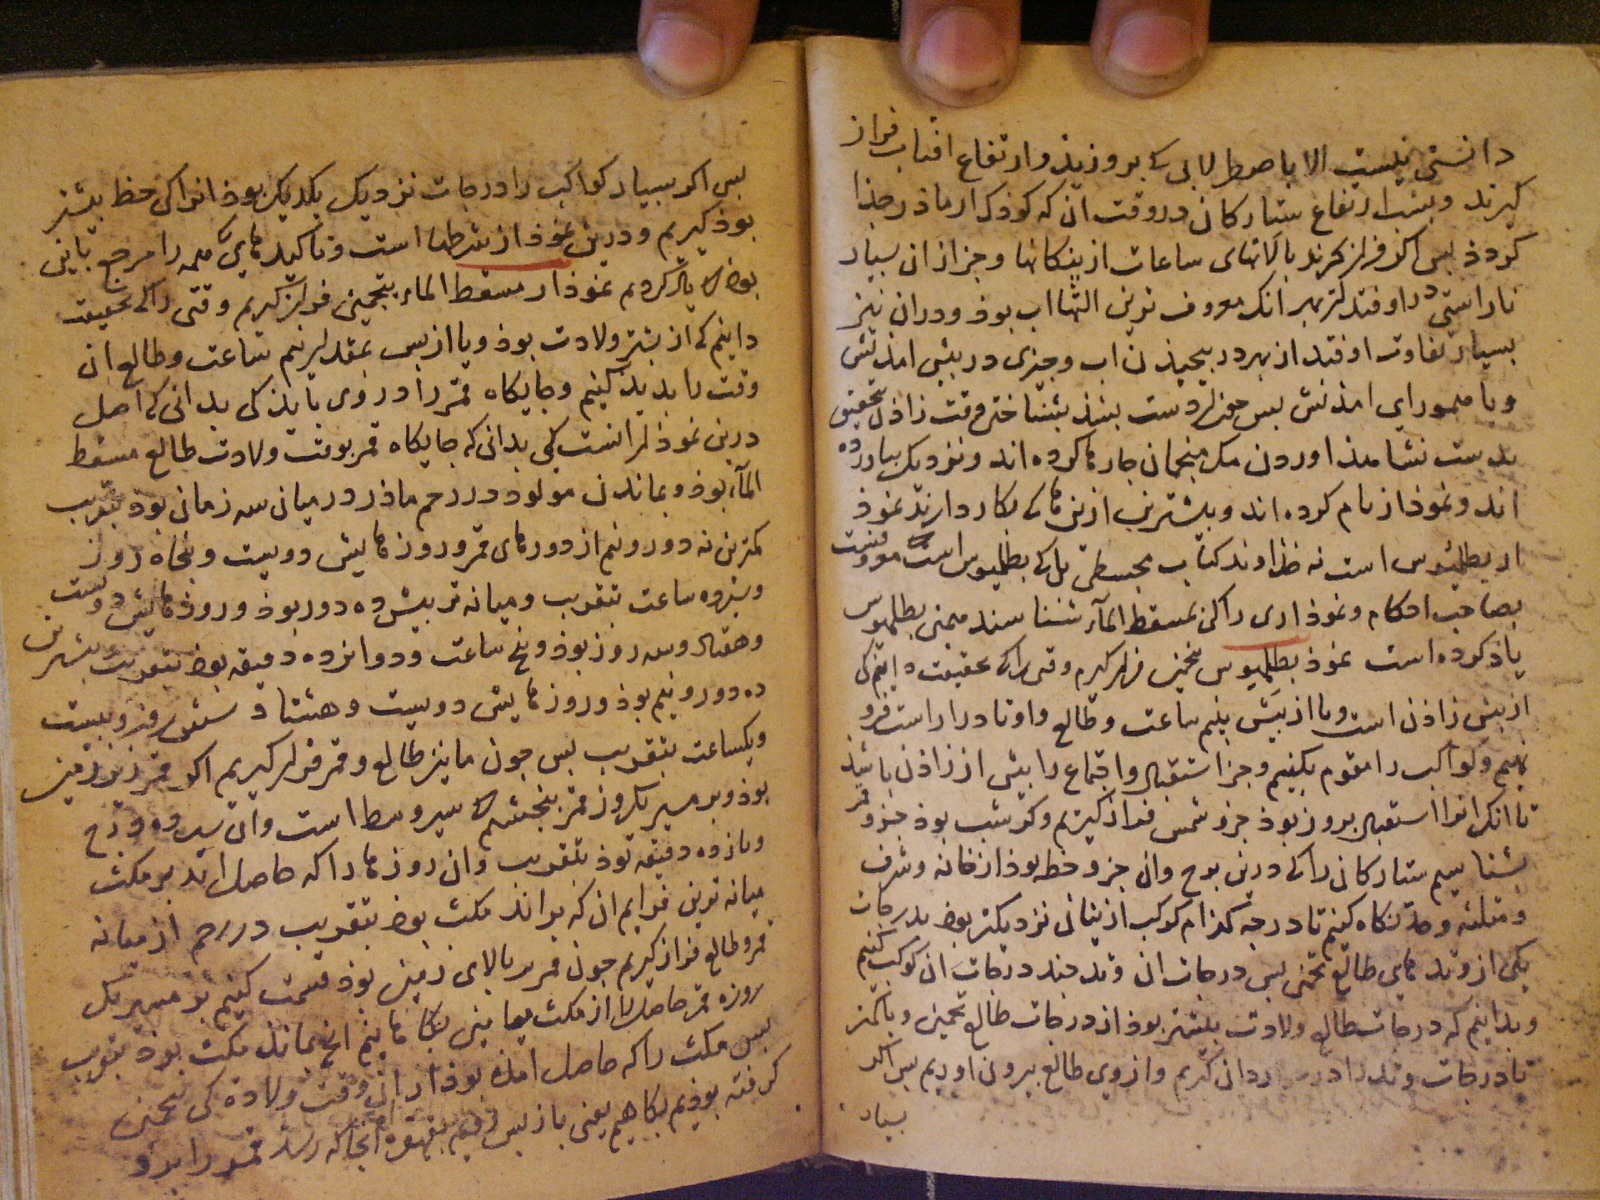 دانستن نیست الا باصطرلابی که بروز بذو ارتفاع افتاب فراز
کیرند و بشب ارتفاع ستارکان در وقت ان که کودک از ماذر جذا
کردد بس اکر فراز کیرند بالتهای ساعات از بنکانها و جز از ان بسیار
ناراستی در اوفتد از بهر انک معروف ترین التها اب بوذ و در ان نیز
بسیار تفاوت اوفتد از بهر در ان اب و جیزی در بیش امذنش
و یا امذنش بس جون دست بشناختن وقت زاذن بتحقیق
بدست نشایذ اوردن مکر منجمان جارها کرده اند و نزدیک بیاورده
اند و نموذار نام کرده اند و بیشترین ازین ها که بکار دارند نموذ
ار بطلمیوس است نه خذاوند کتاب مجسطی بل که بطلمیوس است معروفست
بصاحب احکام و نموذاری را کی بمسقط الماء شناسند بطلمیوس
یاذ کرده است نموذ بطلمیوس تخمین فراز کیریم وقتی را که بحقیقت دانیم کی
از بس زاذن است و یا از بیش بنیم ساعت و طالع و اوتاد را راست فرو
نهیم و کواکب را مقوم بکنیم و جزا استقبال و اجتماع را بیش از زاذن باشذ
تا انک انرا استقبال بروز بوذ جزو شمس فراز کیریم و کر شب بوذ جزو قمر
بشناسیم ستارکانی را که درین برج وان جزو حظ بوذ از خانه و شرف
و مثلثه و حد نکاه کنیم تا درجه کذام کوکب ازیشان نزدیکتر بوذ بدرجات
یکی از وتد های طالع تخمین بس درجات ان وتد جند درجات ان کوکب کنیم
و بدانیم که درجات طالع ولادت بیشتر بوذ از درجات طالع تخمین و یا کمتر
تا درجات وتد را در ان کیریم و از وی طالع بیرون اوریم بس اکر
بسیار
بس اکر بسیار کواکب را درجات نزدیک یکدیکر بوذ انرا کی حظ بیشتر
بوذ کیریم و درین نموذار شرطها است و تاکیدهای همه را مرجع باین
بوذ که یاذ کردیم نموذار مسقط الماء بتخمین فراز کیریم وقتی را که بحقیقت
دانیم که از بیشتر ولادت بوذ و یا از بس بمقدار نیم ساعت و طالع ان
وقت را بدید کنیم و جایکاه قمر را در وی بایذ کی بدانی که اصل
درین نموذار انست کی بدانی که جایکاه قمر بوقت ولادت طالع مسقط
الماء بوذ و بماندن مولود در رحم ماذر در میان سه زمانی بوذ بتقریب
کمترین نه دور و نیم از دورهای قمر و روزهایش دویست و بنجاه روز
و ساعت بتقریب و میانه تر بیش ده دور بوذ و روزهایش دویست
و هفتاد و سه روز بوذ و بنج ساعت و دوانزده دقیقه بوذ بتقریب بیشترین
ده دور و نیم بوذ و روزهایش دویست و هشتاد و شش روز و بیست
و یکساعت بتقریب بس جون ما نیز طالع و قمر فراز کیریم اکر قمر زیر زمین
بوذ و بر مسیر یک روز قمر بخشیم که سیر وسط است وان سیزده درج
و یازده دقیقه بوذ بتقریب وان روزها را که حاصل اید بر مکث
میانه ترین فزایم ان که براند مکث بوذ بتقریب در رحم از میانه
قمر و طالع فراز کیریم جون قمر بر بالای زمین بوذ قسمت کنیم بر مسیر یک
روزه قمر حاصل را از مکث میانین بکاهانیم انج بماند مکث بوذ بتقریب
بس مکث را که حاصل امذ بوذ از ان وقت ولادة کی بتخمین
کرفته بوذیم بکاهیم یعنی باز بس انجا که رسذ قمر را برو